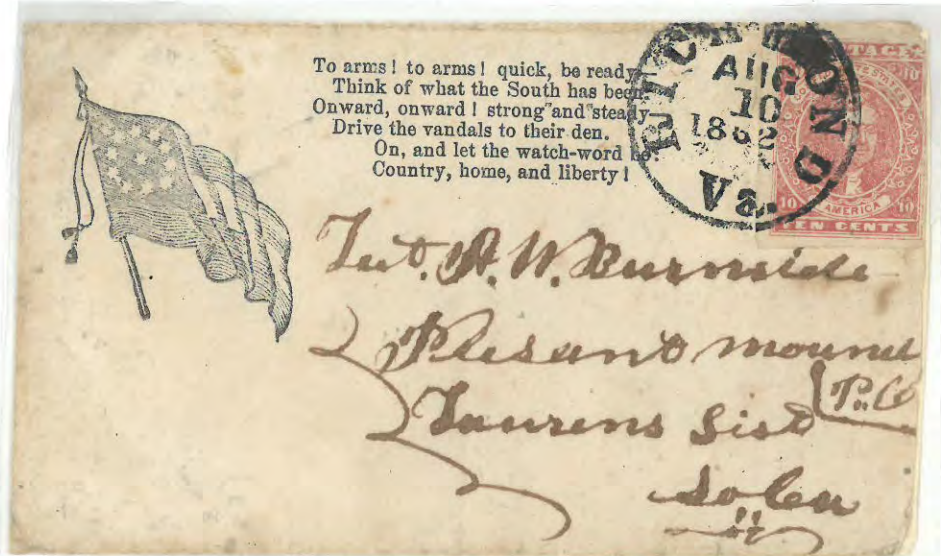 To arms! to arms! quick, be ready
Think of what the South has been
Onward, onward! strong and steady
Drive the vandals to their den.
On, and let the watch-word be:
Country, home, and liberty!
RICHMOND
AUG
10
1862
Va.
POSTAGE
10 10
AMERICA
10 10
TEN CENTS
Lut. A. W. Burnside
Plesant mound
P. O
Laurens Dist
So Ca